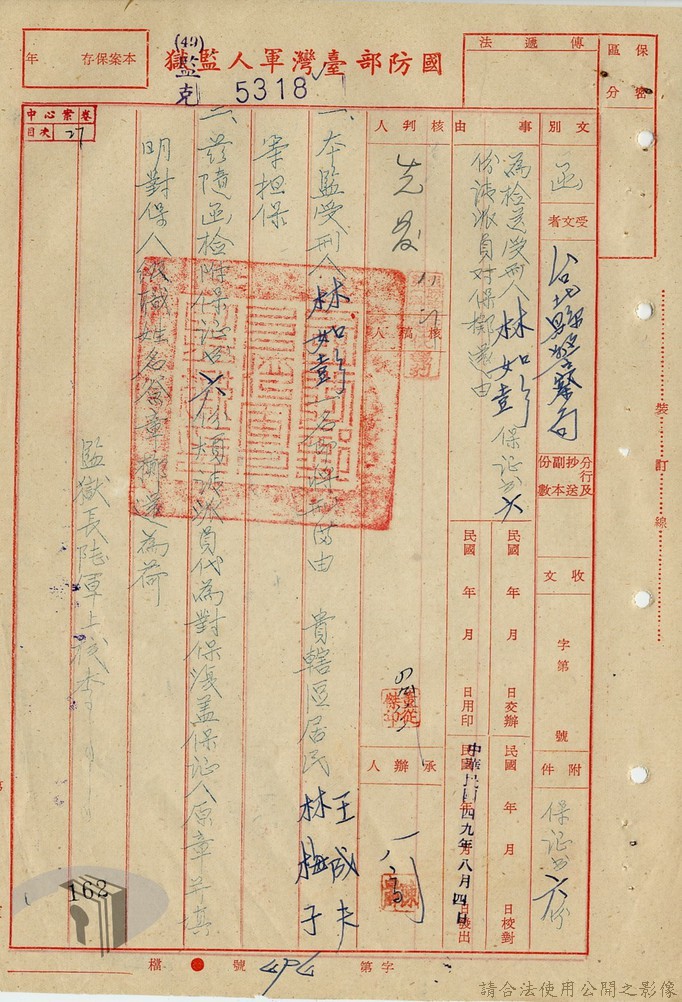 國防部臺灣軍人監獄
(49)監克
5318
本案保存 年
傳遞法
保密區分
中心案卷
目次 27
文別
函
受文者
台北縣警察局
分行及抄送副本份數
收文 字第 號
附件
保証書六份
事由
為檢送受刑人林如彭保証書六
份請派員對保擲還由
民國 年 月 日交辦
民國 年 月 日校對
民國 年 月 日用印
中華民國四九年八月四日
發出
核判人
核稿人
承辦人
一、本監受刑人林如彭一名即將刑滿由 貴轄區居民
王成夫
林梅子
等担保
二、茲隨函檢附保証書六份煩請派員代為對保後蓋保証人原章並填
明對保人級職姓名簽章擲還為荷
監獄長陸軍上校李
裝訂線
字第 號
檔
162
請合法使用公開之影像